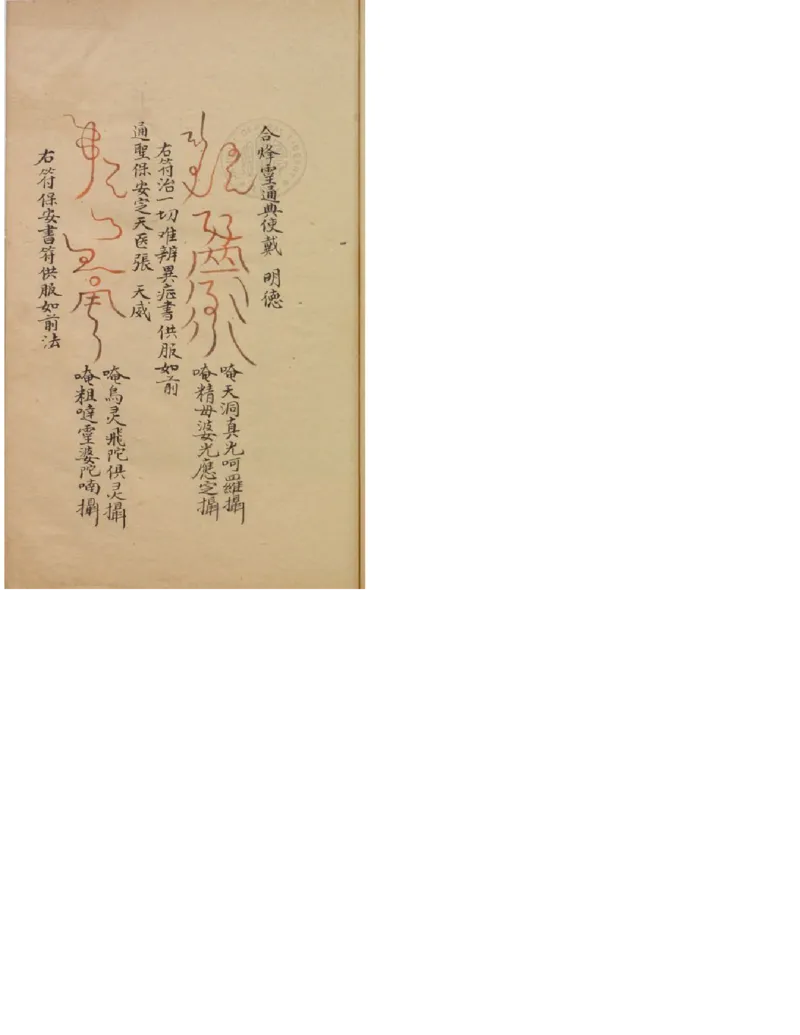 合烽靈通典使戴 明德
唵天洞真允呵羅攝
唵精毋婆光應定攝
右符治一切难辨異症書供服如前
通聖保安定天医張 天威
唵烏灵飛陀俱灵攝
唵粗噠靈婆陀喃攝
右符保安書符供服如前法